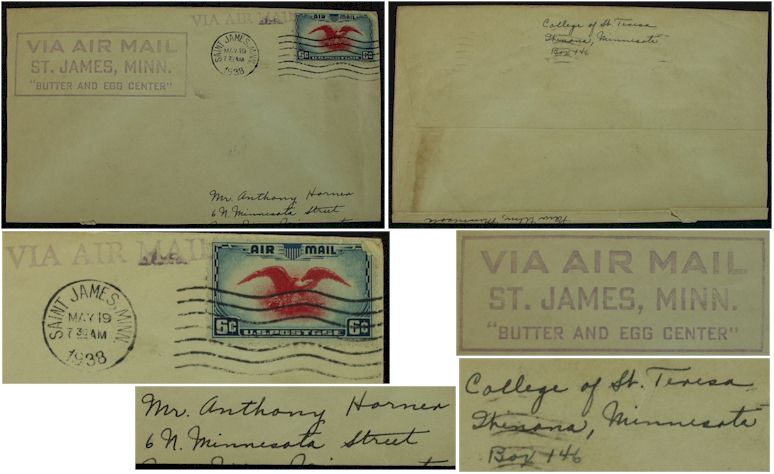 VIA AIR MAIL
VIA AIR MAIL
ST. JAMES, MINN.
"BUTTER AND EGG CENTER"
SAINT JAMES, MINN.
MAY 19
7 30 AM
1938
AIR MAIL
6¢ U.S. POSTAGE 6¢
Mr. Anthony Horner
6 N. Minnesota Street
College of St. Teresa
Winona, Minnesota
Box 146
New Ulm, Minnesota
VIA AIR MAIL
SAINT JAMES, MINN.
MAY 19
7 30 AM
1938
AIR MAIL
6¢ 6¢
U.S. POSTAGE
VIA AIR MAIL
ST. JAMES, MINN.
"BUTTER AND EGG CENTER"
Mr. Anthony Horner
6 N. Minnesota Street
College of St. Teresa
Winona, Minnesota
Box 146